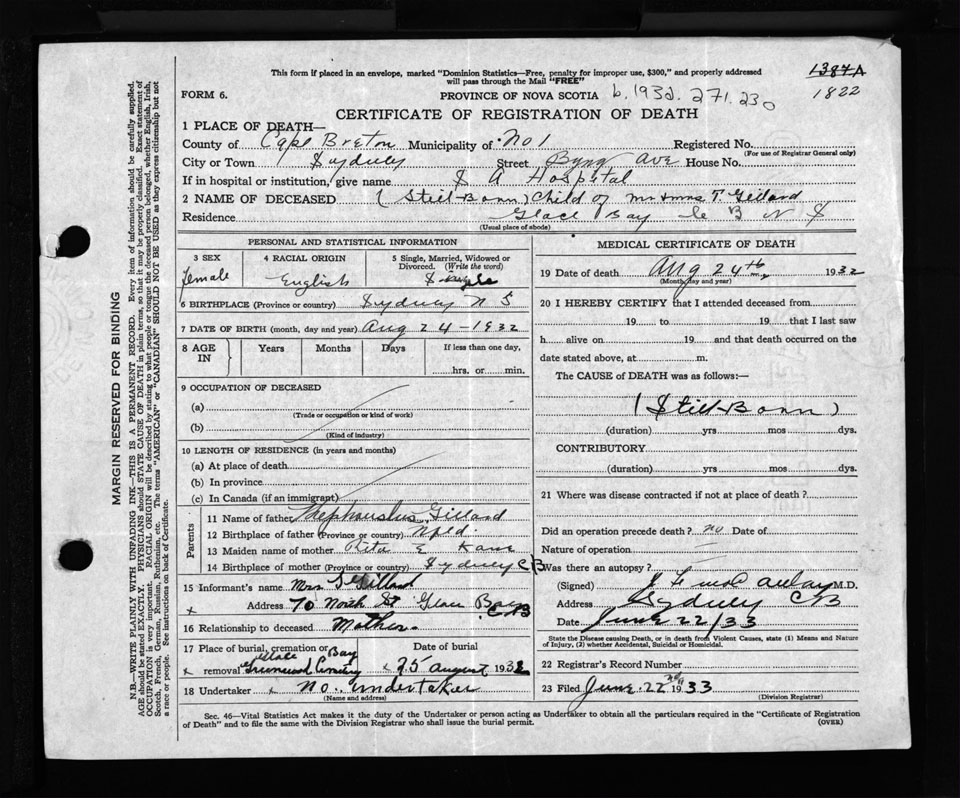 This form if placed in an envelope, marked "Dominion Statistics—Free, penalty for improper use, $300," and properly addressed
will pass through the Mail "FREE"
1387A
1822
FORM 6.
PROVINCE OF NOVA SCOTIA b. 1932. 271.230
CERTIFICATE OF REGISTRATION OF DEATH
1 PLACE OF DEATH—
County of Cape Breton Municipality of No 1 Registered No.
(For use of Registrar General only)
City or Town Sydney Street Byng Ave House No.
If in hospital or institution, give name S A Hospital
2 NAME OF DECEASED (Still-Born) Child of Mr & Mrs T. Gillard
Residence Glace Bay C B N S
(Usual place of abode)
PERSONAL AND STATISTICAL INFORMATION
3 SEX
Female
4 RACIAL ORIGIN
English
5 Single, Married, Widowed or
Divorced. (Write the word)
Single
6 BIRTHPLACE (Province or country) Sydney N S
7 DATE OF BIRTH (month, day and year) Aug 24 - 1932
8 AGE
IN
Years
Months
Days
If less than one day,
hrs. or min.
9 OCCUPATION OF DECEASED
(a)
(Trade or occupation or kind of work)
(b)
(Kind of industry)
10 LENGTH OF RESIDENCE (in years and months)
(a) At place of death
(b) In province
(c) In Canada (if an immigrant)
Parents
11 Name of father Gillard
12 Birthplace of father (Province or country) Nfld.
13 Maiden name of mother Rita E Kane
14 Birthplace of mother (Province or country) Sydney C B
15 Informant's name Mrs Gillard
x Address 70 North St Glace Bay C B
16 Relationship to deceased Mother
17 Place of burial, cremation or Date of burial
Glace Bay
x removal Greenwood Cemetery x 25 August 1932
18 Undertaker x No undertaker
(Name and address)
MEDICAL CERTIFICATE OF DEATH
19 Date of death Aug 24th 1932
(Month, day and year)
20 I HEREBY CERTIFY that I attended deceased from
19 to 19 that I last saw
h alive on 19 and that death occurred on the
date stated above, at m.
The CAUSE of DEATH was as follows:—
(Still-Born)
(duration) yrs mos dys.
CONTRIBUTORY
(duration) yrs mos dys.
21 Where was disease contracted if not at place of death?
Did an operation precede death? no Date of
Nature of operation
Was there an autopsy?
(Signed) M.D.
Address Sydney C B
Date June 22/33
State the Disease causing Death, or in death from Violent Causes, state (1) Means and Nature
of Injury, (2) whether Accidental, Suicidal or Homicidal.
22 Registrar's Record Number
23 Filed June 22nd 1933
(Division Registrar)
Sec. 46—Vital Statistics Act makes it the duty of the Undertaker or person acting as Undertaker to obtain all the particulars required in the "Certificate of Registration
of Death" and to file the same with the Division Registrar who shall issue the burial permit. (OVER)
MARGIN RESERVED FOR BINDING
N.B.—WRITE PLAINLY WITH UNFADING INK—THIS IS A PERMANENT RECORD. Every item of information should be carefully supplied.
AGE should be stated EXACTLY. PHYSICIANS should STATE CAUSE OF DEATH in plain terms, so that it may be properly classified. Exact statement of
OCCUPATION is very important. RACIAL ORIGIN will be described by stating to what people or tongue the deceased person belonged, whether English, Irish,
Scotch, French, German, Russian, Ruthenian, etc. The terms "AMERICAN" or "CANADIAN" SHOULD NOT BE USED as they express citizenship but not
a race or people. See instructions on back of Certificate.